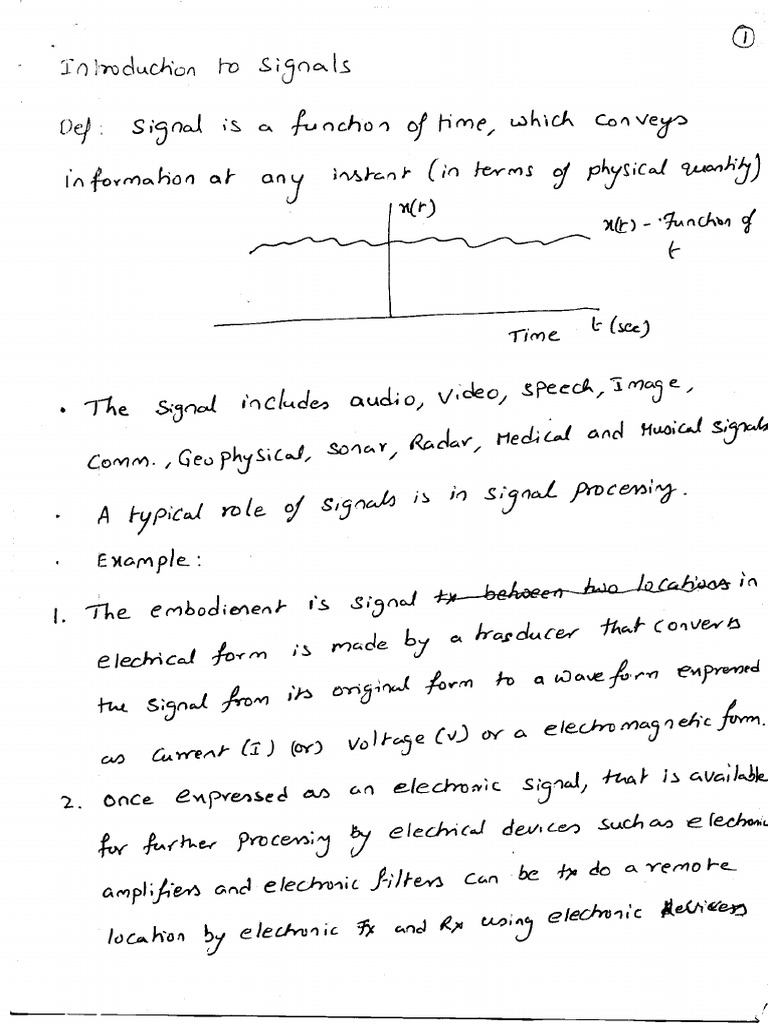 1
Introduction to Signals
Def: Signal is a function of time, which conveys
information at any instant (in terms of physical quantity)
x(t)
x(t) - Function of
t
Time t (sec)
• The Signal includes audio, Video, Speech, Image,
Comm., Geophysical, Sonar, Radar, Medical and Musical Signals
• A typical role of Signals is in Signal Processing.
• Example:
1. The embodiement is Signal tx between two locations in
electrical form is made by a trasducer that converts
the Signal from its original form to a wave form expressed
as Current (I) (or) Voltage (V) or a electromagnetic form.
2. Once expressed as an electronic Signal, that is available
for further Processing by electrical devices such as electronic
amplifiers and electronic filters can be tx do a remote
location by electronic Tx and Rx using electronic devices